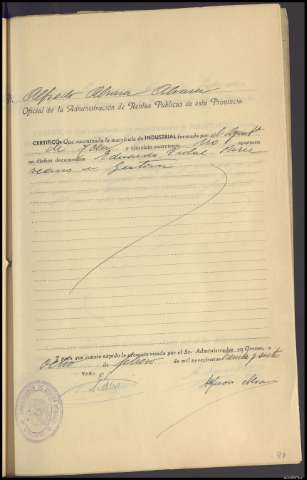 Alfredo Alvarez Alvarez
Oficial de la Administración de Rentas Públicas de esta Provincia
CERTIFICO: Que examinada la matrícula de INDUSTRIAL formada por el
de y término no aparece
en dichos documentos Eduardo Vidal Pérez
vecino de
Y para que conste expido la presente visada por el Sr. Administrador, en Orense, a
ocho de febrero de mil novecientos treinta y siete
V.º B.º